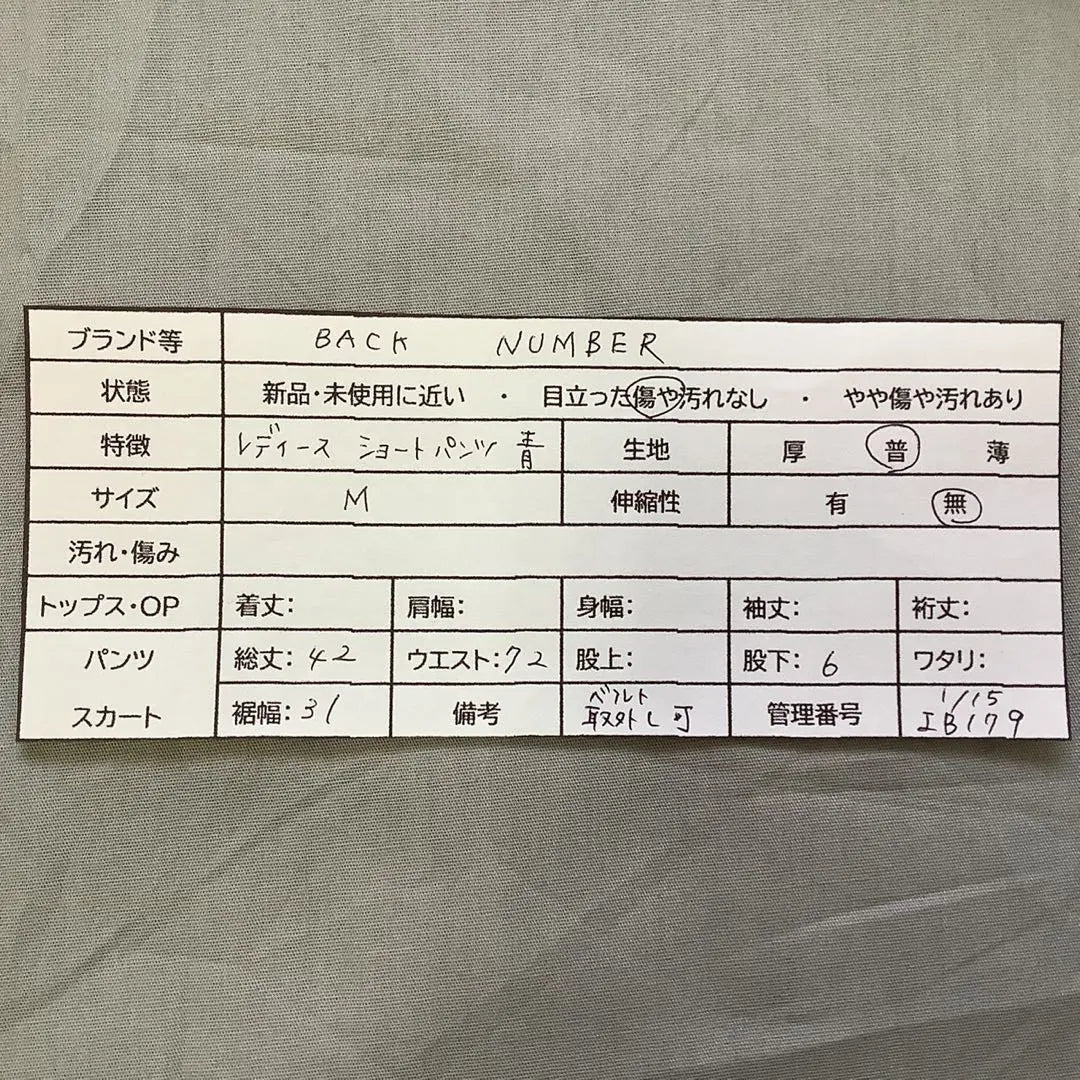 ブランド等 BACK NUMBER
状態 新品・未使用に近い ・ 目立った傷や汚れなし ・ やや傷や汚れあり
特徴 レディース ショートパンツ 青 生地 厚 普 薄
サイズ M 伸縮性 有 無
汚れ・傷み
トップス・OP 着丈: 肩幅: 身幅: 袖丈: 裄丈:
パンツ 総丈: 42 ウエスト: 72 股上: 股下: 6 ワタリ:
スカート 裾幅: 31 備考 ベルト 取外し可 管理番号 1/15 IB179